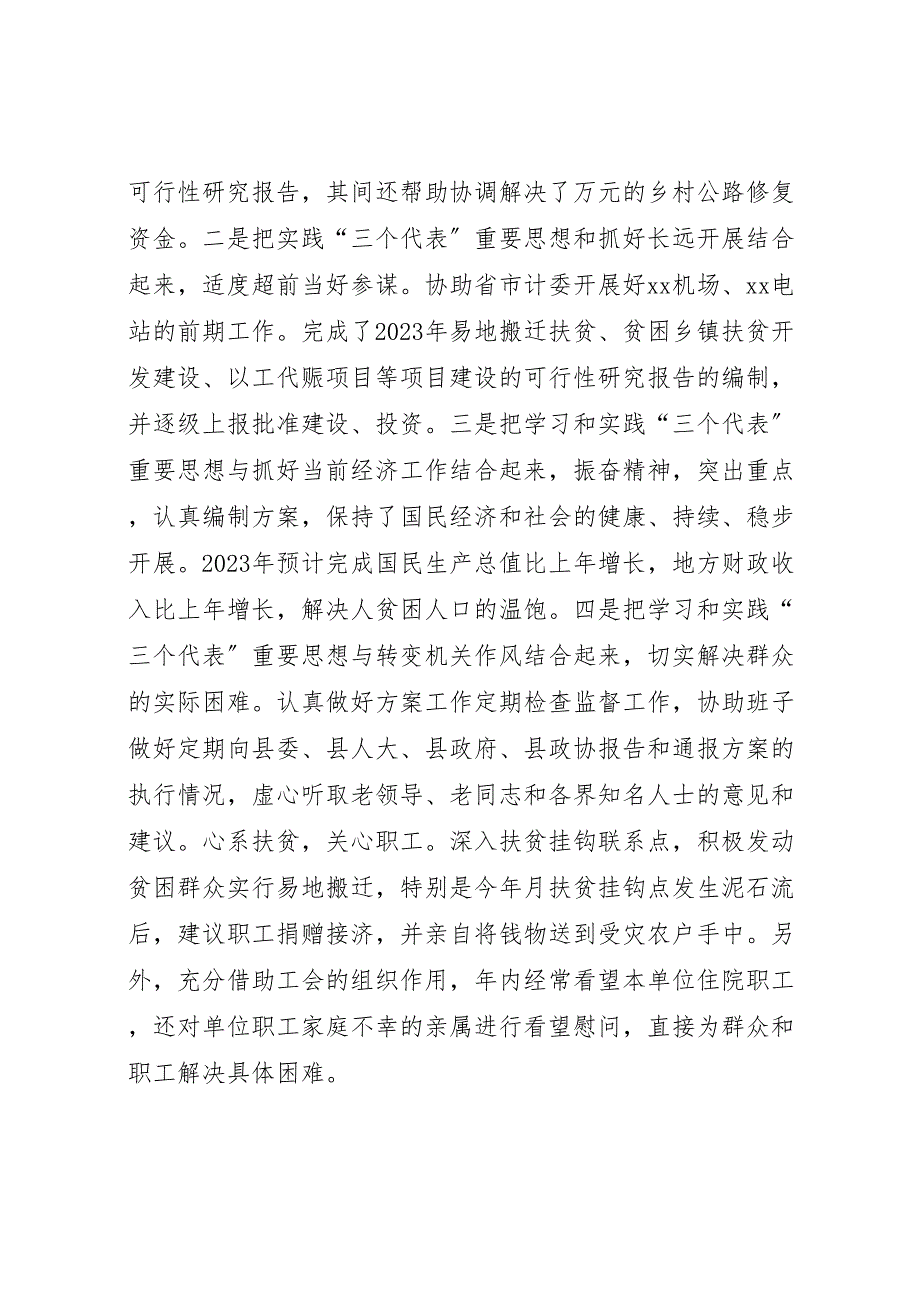 可行性研究报告，其间还帮助协调解决了万元的乡村公路修复
资金。二是把实践“三个代表〞重要思想和抓好长远开展结合
起来，适度超前当好参谋。协助省市计委开展好xx机场、xx电
站的前期工作。完成了2023年易地搬迁扶贫、贫困乡镇扶贫开
发建设、以工代赈项目等项目建设的可行性研究报告的编制，
并逐级上报批准建设、投资。三是把学习和实践“三个代表〞
重要思想与抓好当前经济工作结合起来，振奋精神，突出重点
，认真编制方案，保持了国民经济和社会的健康、持续、稳步
开展。2023年预计完成国民生产总值比上年增长，地方财政收
入比上年增长，解决人贫困人口的温饱。四是把学习和实践“
三个代表〞重要思想与转变机关作风结合起来，切实解决群众
的实际困难。认真做好方案工作定期检查监督工作，协助班子
做好定期向县委、县人大、县政府、县政协报告和通报方案的
执行情况，虚心听取老领导、老同志和各界知名人士的意见和
建议。心系扶贫，关心职工。深入扶贫挂钩联系点，积极发动
贫困群众实行易地搬迁，特别是今年月扶贫挂钩点发生泥石流
后，建议职工捐赠接济，并亲自将钱物送到受灾农户手中。另
外，充分借助工会的组织作用，年内经常看望本单位住院职工
，还对单位职工家庭不幸的亲属进行看望慰问，直接为群众和
职工解决具体困难。